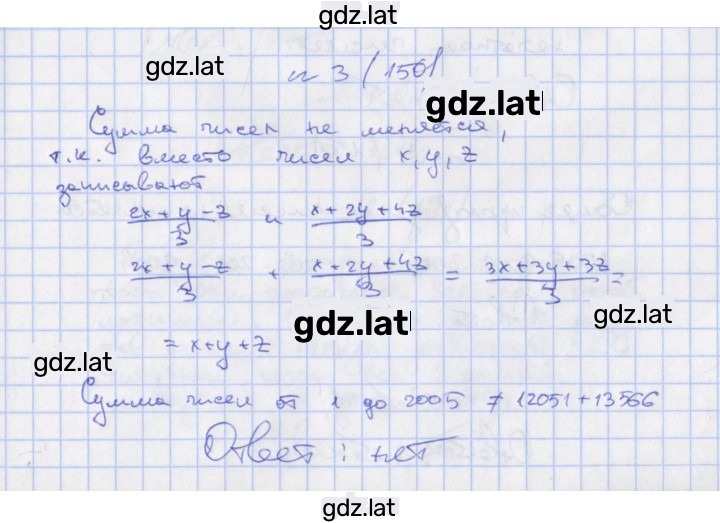 gdz.lat
gdz.lat
n 3 (150)
gdz.lat
Сумма чисел не меняется,
т.к. вместо чисел x, y, z
записывают
(2x + y - z)/3 и (x + 2y + 4z)/3
(2x + y - z)/3 + (x + 2y + 4z)/3 = (3x + 3y + 3z)/3 =
gdz.lat
gdz.lat
= x + y + z
gdz.lat
Сумма чисел от 1 до 2005 ≠ 12051 + 13566
Ответ: нет
gdz.lat